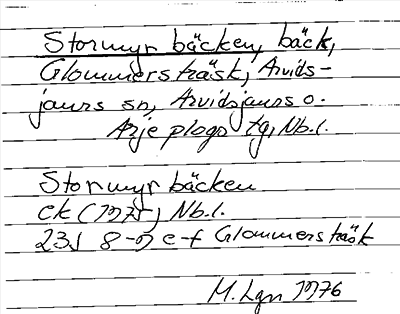 Stormyrbäcken, bäck,
Glommersträsk, Arvids-
jaurs sn, Arvidsjaurs o.
Arjeplogs tg, Nb.l.
Stormyrbäcken
ek (1975) Nb.l.
23J 8-9 e-f Glommersträsk
M. Lgn 1976